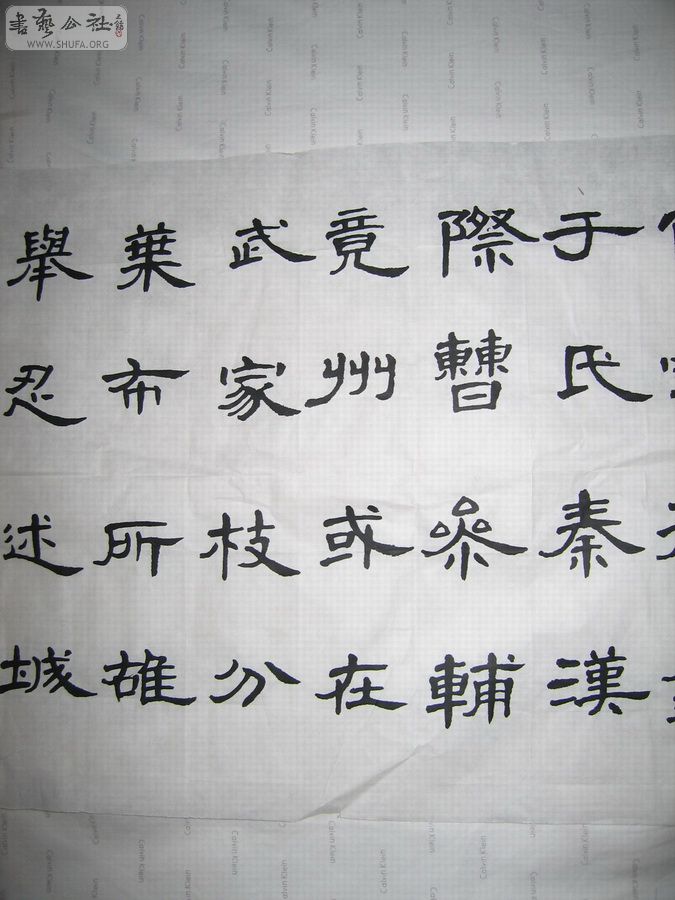 書藝公社
WWW.SHUFA.ORG
于氏秦漢
際曹參輔
竟州或在
武家枝分
葉布所雄
舉忍述城
Calvin Klein